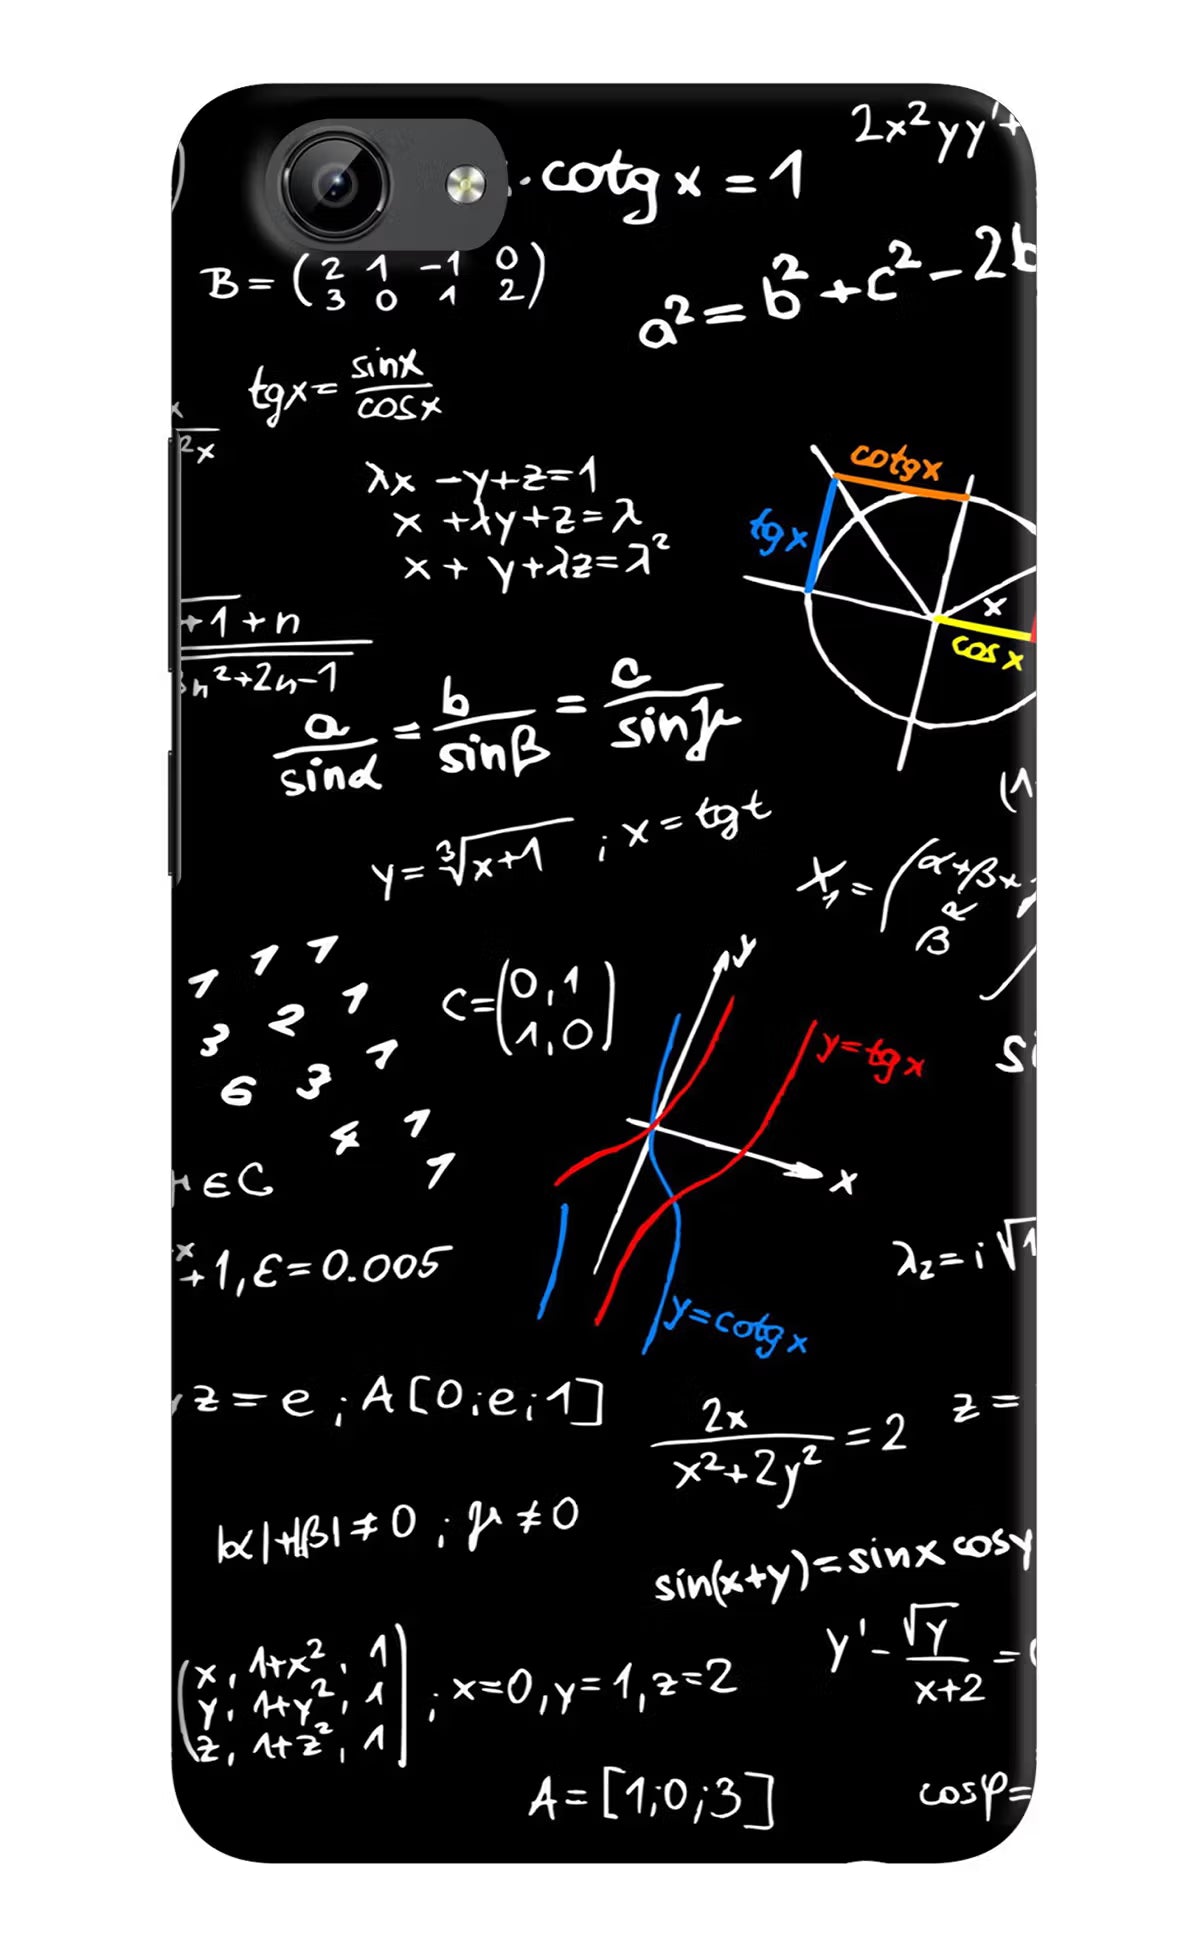 2x²yy'+
· cotg x = 1
B = (2 1 -1 0
3 0 1 2)
a² = b² + c² - 2b
tgx = sinx
cosx
2x
λx - y + z = 1
x + λy + z = λ
x + y + λz = λ²
cotgx
tgx
x
cos x
+1 + n
n²+2n-1
a/sinα = b/sinβ = c/sinγ
y = ∛x+1 ; x = tgt
(1
X₁ = (α+βx
β R
1 1 1
3 2 1
6 3 1
4 1
1
C = (0,1
1,0)
y
y=tgx
si
x
∈C
x
+1, ε = 0.005
λ₂ = i √1
y=cotgx
z = e ; A[0;e;1]
2x
x²+2y² = 2
z =
|α|+|β| ≠ 0 ; μ ≠ 0
sin(x+y) = sinx cosy
y' - √y
x+2 =
(x, 1+x², 1
y, 1+y², 1
z, 1+z², 1) ; x=0, y=1, z=2
A = [1;0;3]
cosφ =